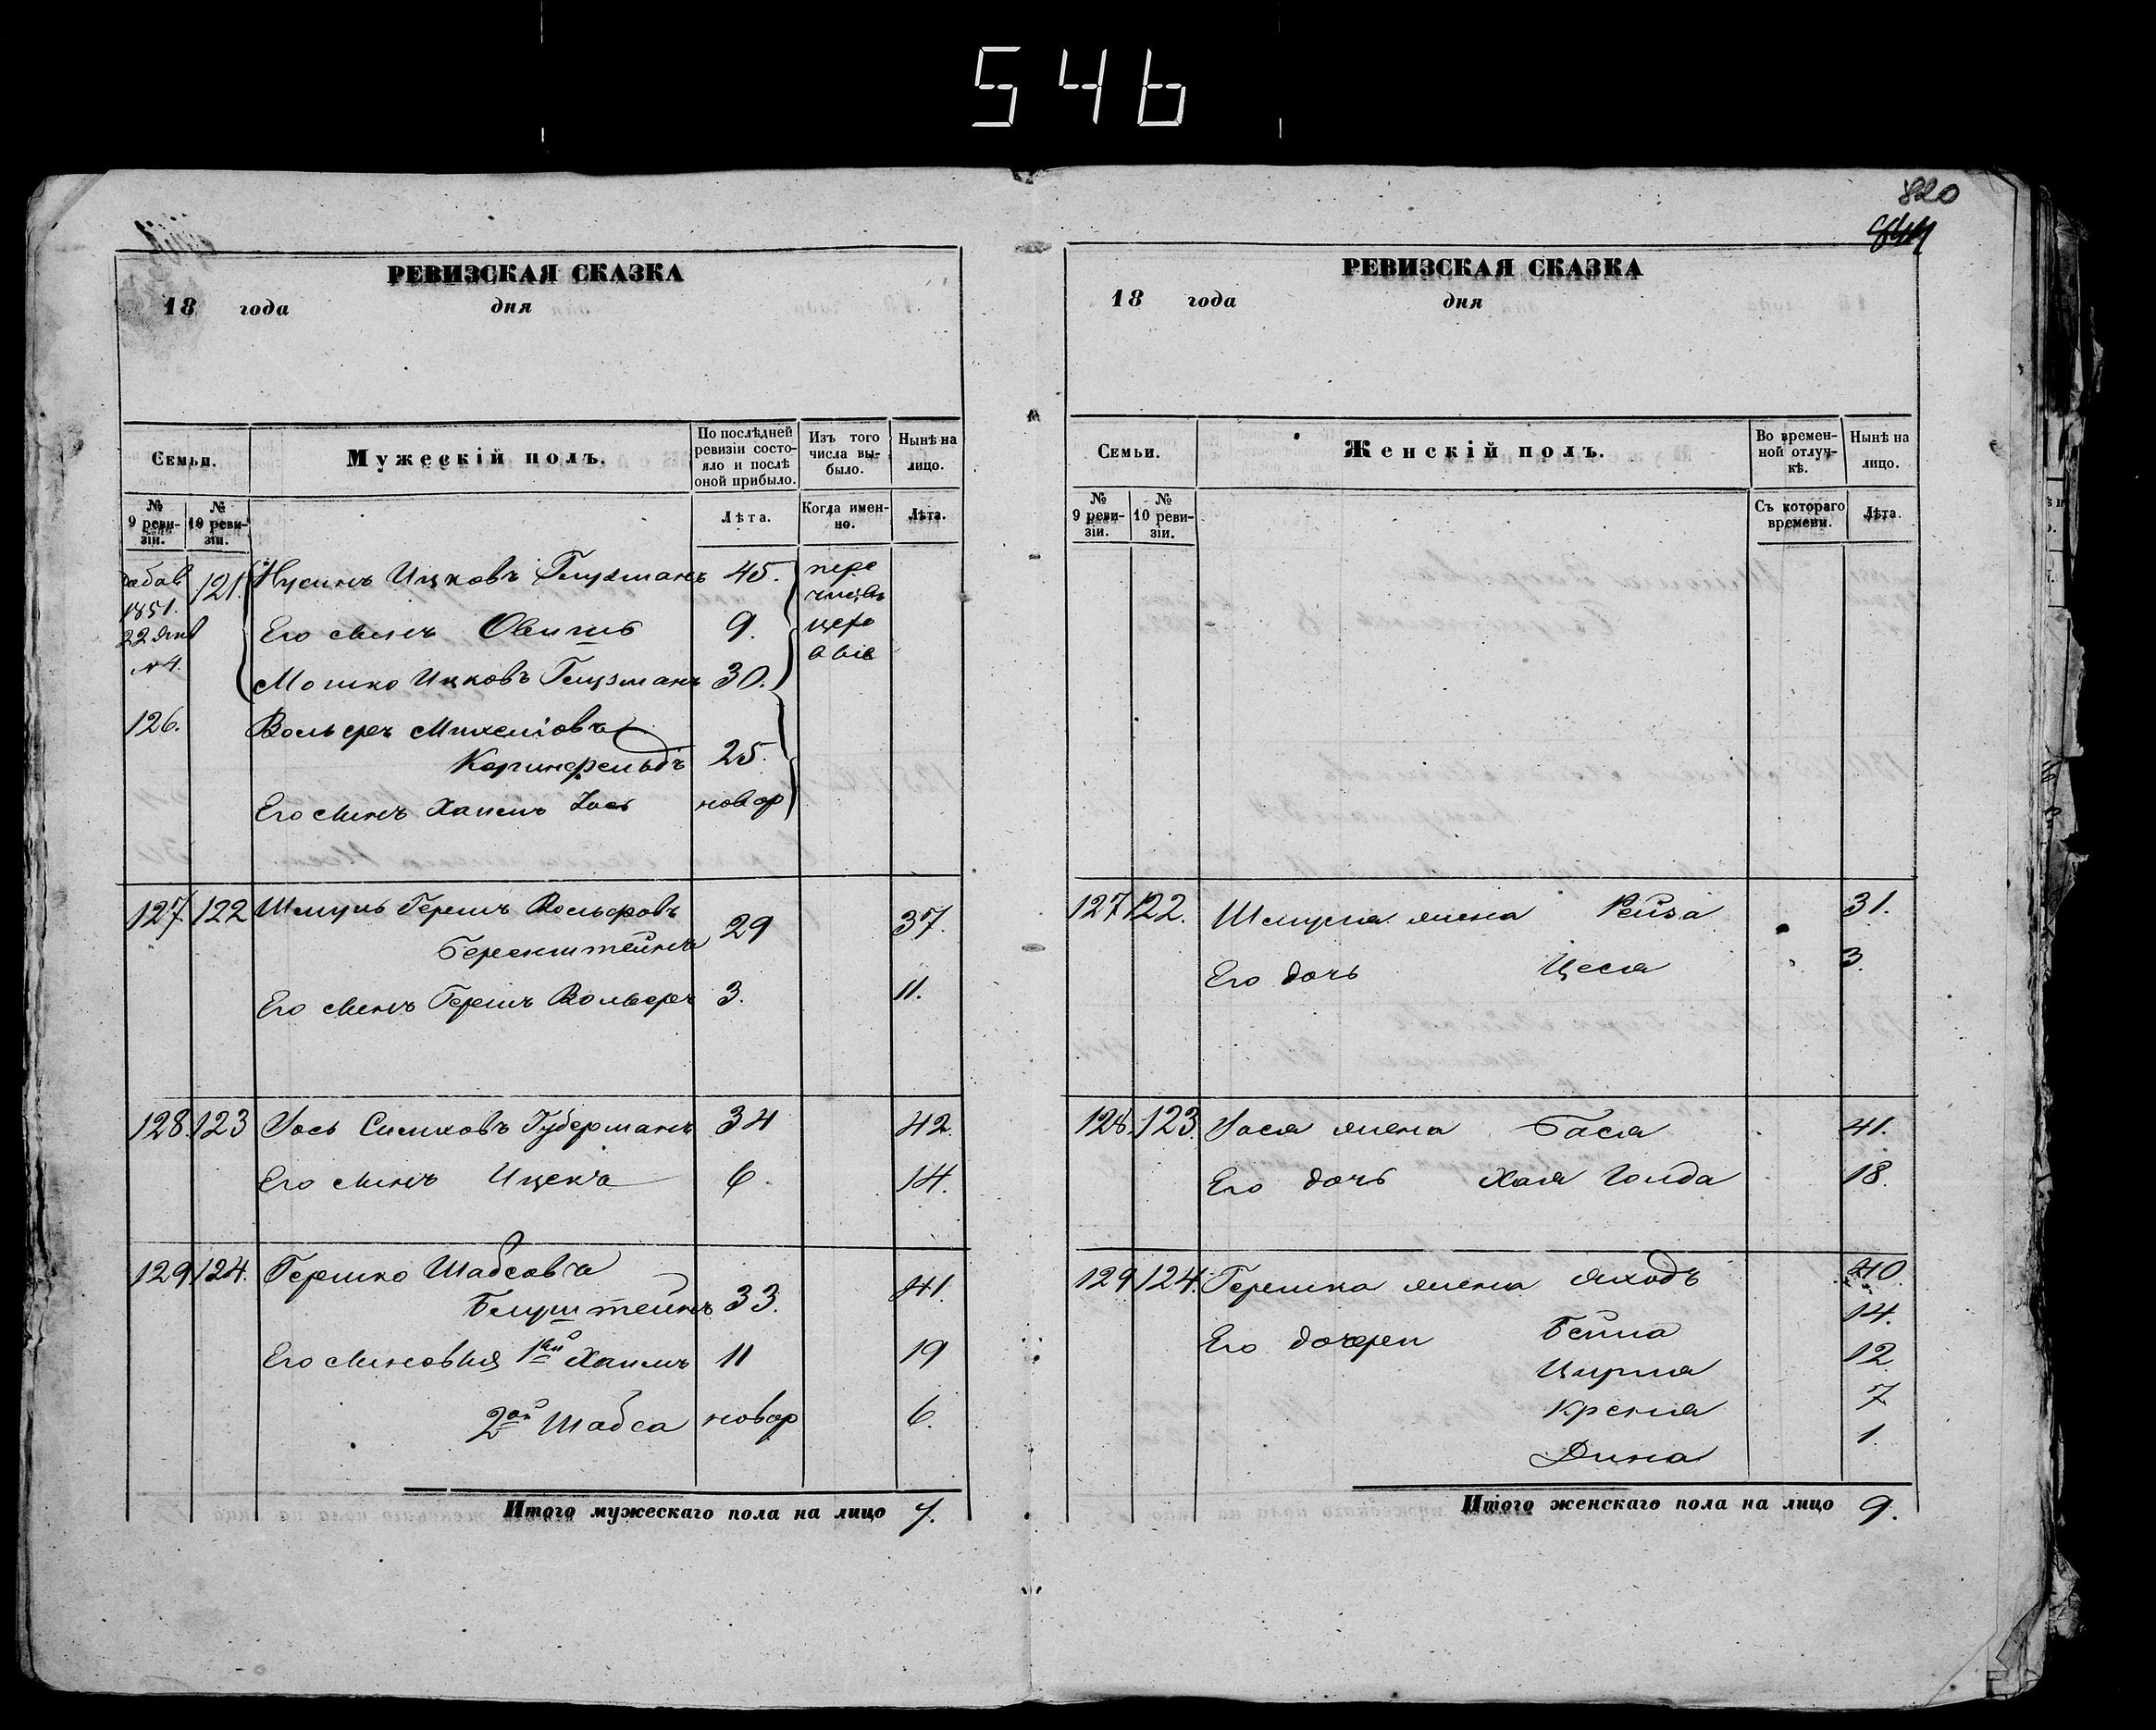 546
820
844
РЕВИЗСКАЯ СКАЗКА
18 года дня
Семьи.
Мужескій полъ.
По послѣдней ревизіи состояло и послѣ оной прибыло.
Изъ того числа выбыло.
Нынѣ на лицо.
№ 9 ревизіи.
№ 10 ревизіи.
Лѣта.
Когда именно.
Лѣта.
1851. 121. Нусинъ Ицковъ Глузманъ 45.
22 N 4.
Его сынъ 9.
Мошко Ицковъ Глузманъ 30.
126. Вольфъ Михелiовъ
25.
Его сынъ Хаимъ Іось новор
127. 122 Шмуль Гершъ Вольфовъ
Беренштейнъ 29 37.
Его сынъ Гершъ Вольфъ 3. 11.
128. 123 Іось Симховъ Губерманъ 34 42.
Его сынъ Ицекъ 6 14.
129 124. Гершко Шабсовъ
33. 41.
Его сыновья 1й Хаимъ 11 19
2ой Шабса новор 6.
Итого мужескаго пола на лицо 7.
РЕВИЗСКАЯ СКАЗКА
18 года дня
Семьи.
Женскій полъ.
Во временной отлучкѣ.
Нынѣ на лицо.
№ 9 ревизіи.
№ 10 ревизіи.
Съ котораго времени.
Лѣта.
127 122. Шмуля жена Рейза 31.
Его дочь Цеся 3.
128. 123. Іося жена Бася 41.
Его дочь Хая Голда 18.
129 124. Гершка жена 40
Его дочери Бейла 14.
Цирля 12
Креня 7
Дина 1.
Итого женскаго пола на лицо 9.